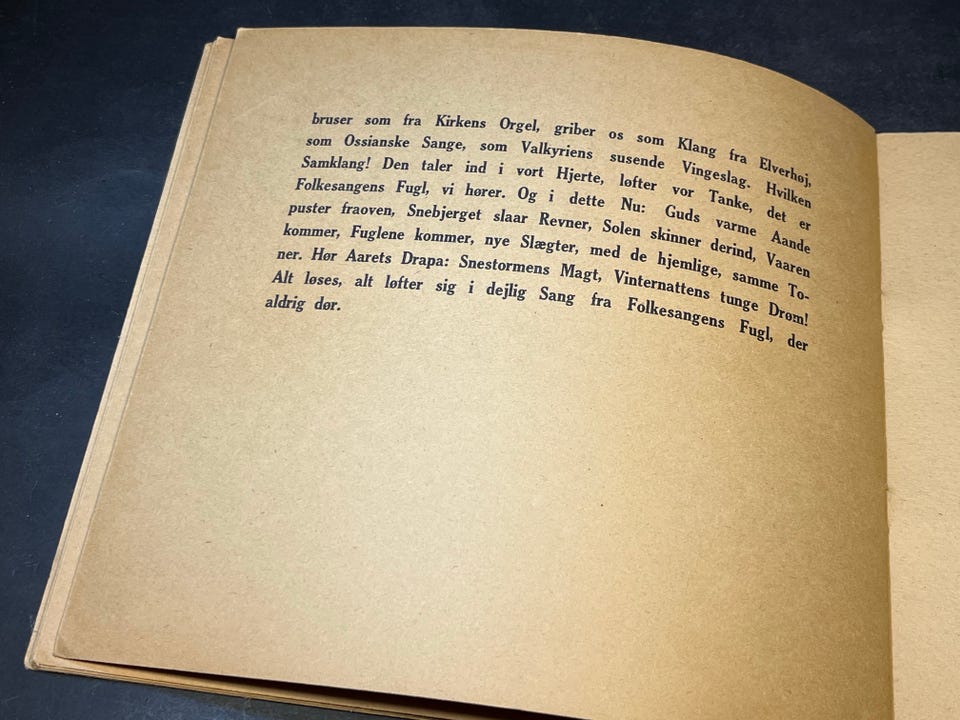 bruser som fra Kirkens Orgel, griber os som Klang fra Elverhøj,
som Ossianske Sange, som Valkyriens susende Vingeslag. Hvilken
Samklang! Den taler ind i vort Hjerte, løfter vor Tanke, det er
Folkesangens Fugl, vi hører. Og i dette Nu: Guds varme Aande
puster fraoven, Snebjerget slaar Revner, Solen skinner derind, Vaaren
kommer, Fuglene kommer, nye Slægter, med de hjemlige, samme To-
ner. Hør Aarets Drapa: Snestormens Magt, Vinternattens tunge Drøm!
Alt løses, alt løfter sig i dejlig Sang fra Folkesangens Fugl, der
aldrig dør.